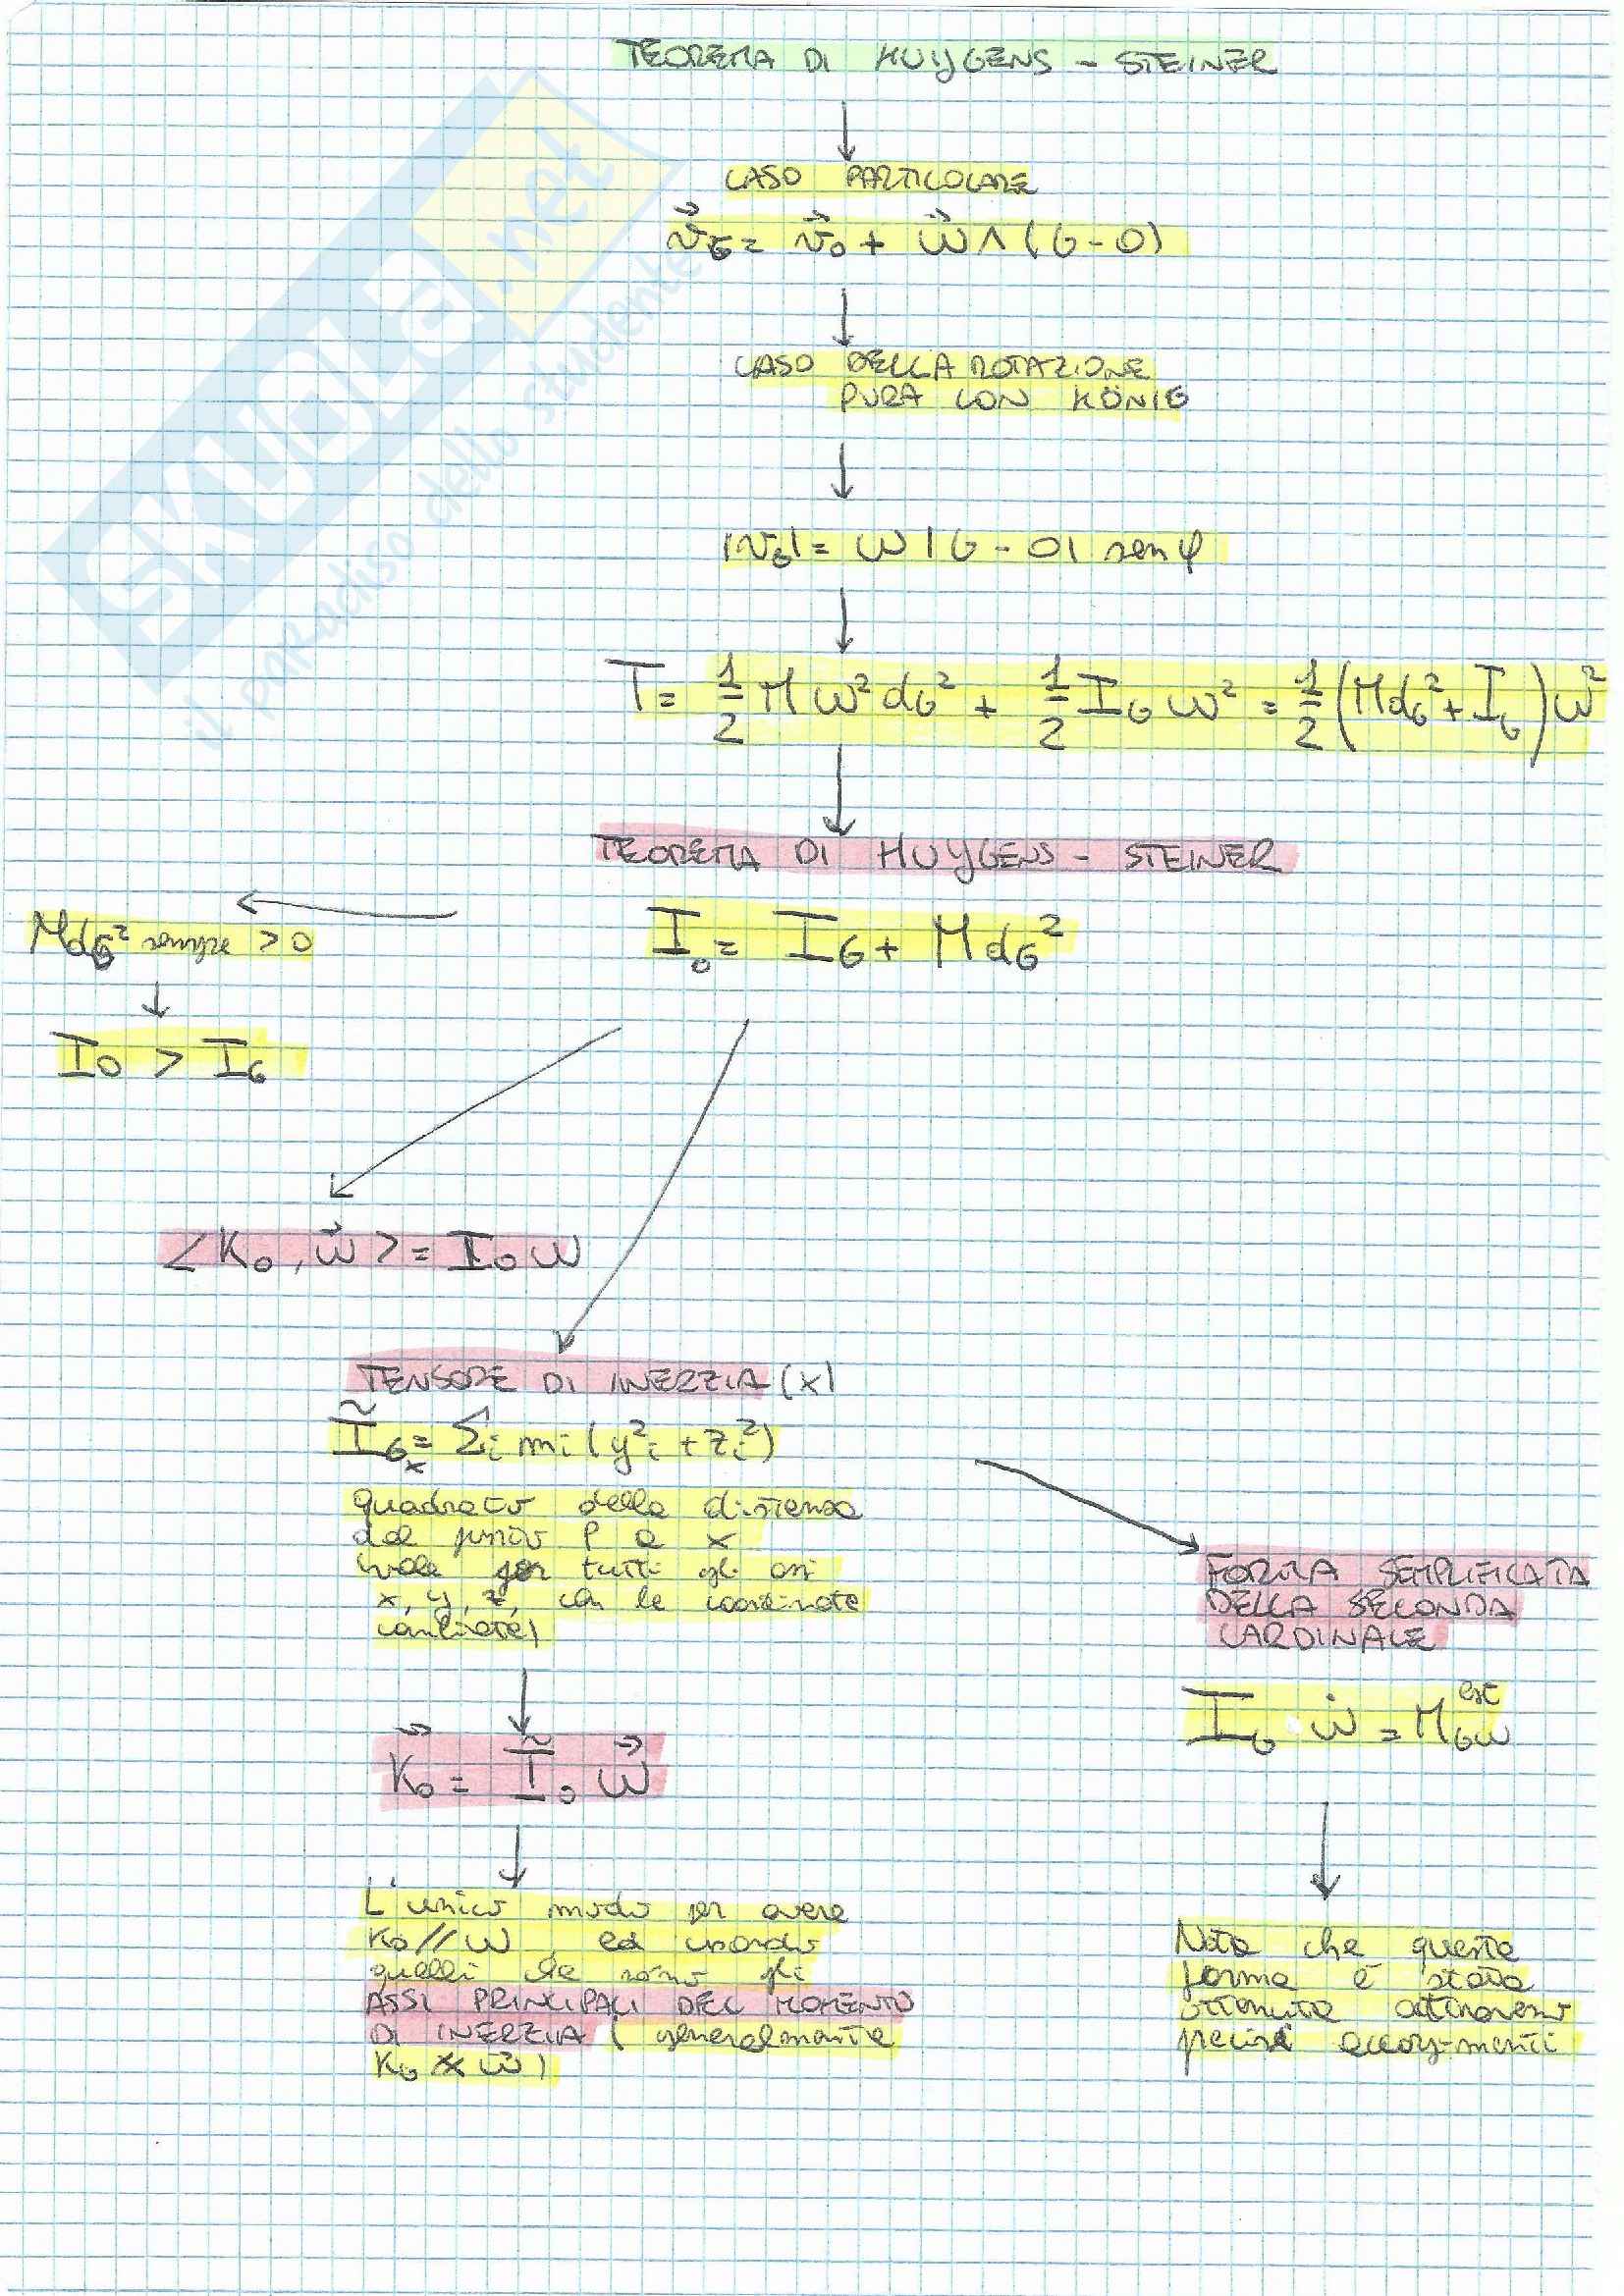 TEOREMA DI HUYGENS - STEINER
CASO PARTICOLARE
v⃗G = v⃗o + ω⃗ ∧ (G - O)
CASO DELLA ROTAZIONE
PURA CON KÖNIG
|vG| = ω |G - O| sen φ
T = 1/2 M ω² dG² + 1/2 IG ω² = 1/2 (M dG² + IG) ω²
TEOREMA DI HUYGENS - STEINER
Io = IG + M dG²
M dG² sempre > 0
Io > IG
< Ko, ω⃗ > = Io ω
TENSORE DI INERZIA (x)
ĨGx = Σi mi (y²i + zi²)
quadrato della distanza
del punto P a x
vale per tutti gli assi
x, y, z, con le coordinate
cambiate)
K⃗o = Ĩo ω⃗
L'unico modo per avere
Ko // ω ed usando
quelli che sono gli
ASSI PRINCIPALI DEL MOMENTO
DI INERZIA (generalmente
FORMA SEMPLIFICATA
DELLA SECONDA
CARDINALE
IG · ω̇ = M est Gω
Nota che questa
forma è stata
ottenuta attraverso
precisi accorgimenti
SKUOLA.net
il paradiso dello studente